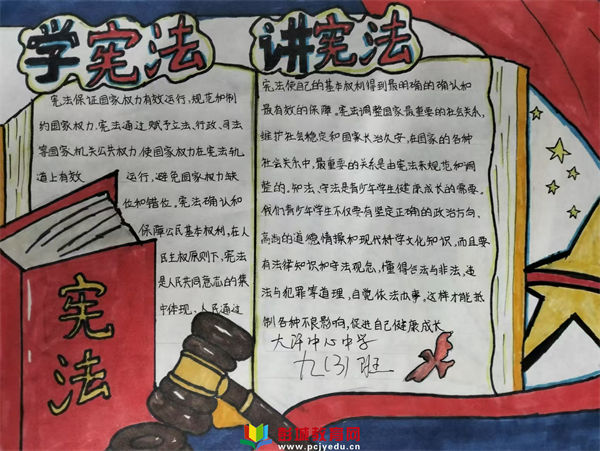 学宪法 讲宪法
宪法保证国家权力有效运行,规范和制
约国家权力.宪法通过赋予立法、行政、司法
等国家机关公共权力,使国家权力在宪法轨
道上有效运行,避免国家权力缺
位和错位。宪法确认和
保障公民基本权利,在人
民主权原则下,宪法
是人民共同意志的集
中体现。人民通过
宪法使自己的基本权利得到最明确的确认和
最有效的保障。宪法调整国家最重要的社会关系,
维护社会稳定和国家长治久安,在国家的各种
社会关系中,最重要的关系是由宪法来规范和调
整的。知法、守法是青少年学生健康成长的需要。
我们青少年学生不仅要有坚定正确的政治方向、
高尚的道德情操和现代科学文化知识,而且要
有法律知识和守法观念,懂得合法与非法、违
法与犯罪等道理,自觉依法办事,这样才能抵
制各种不良影响,促进自己健康成长
中心中学
九(3)班
宪法
彭城教育网
www.pcjyedu.cn